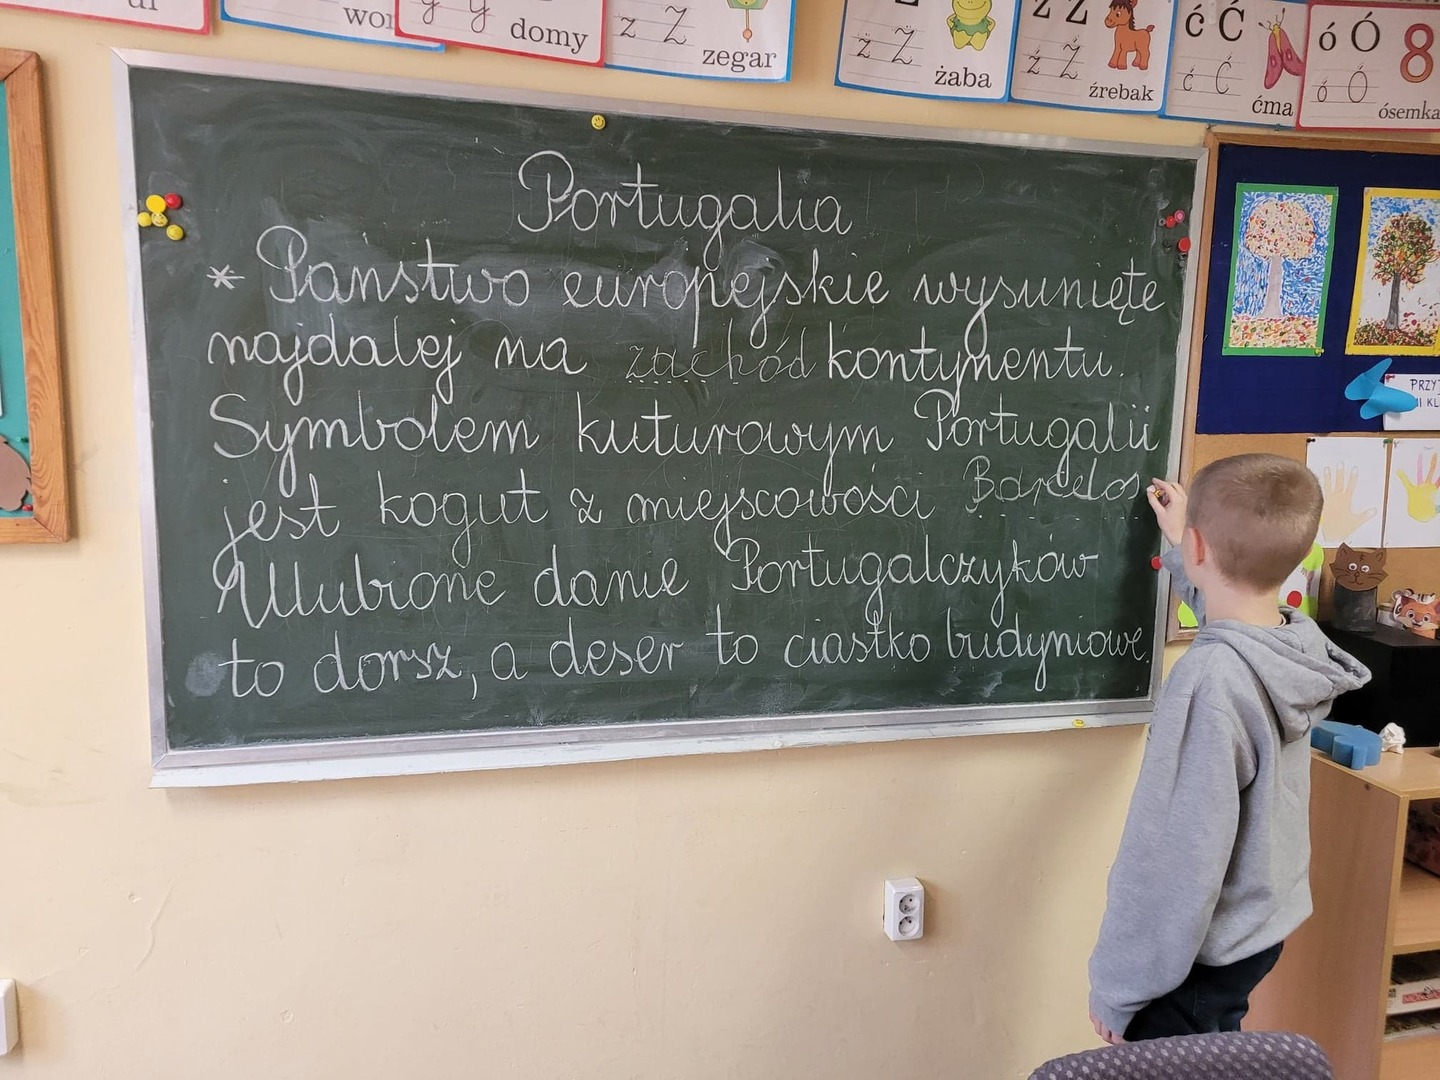 domy
z Z zegar
ż Ż żaba
ź Ź źrebak
ć Ć ćma
ó Ó 8 ósemka
Portugalia
* Państwo europejskie wysunięte
najdalej na zachód kontynentu.
Symbolem kuturowym Portugalii
jest kogut z miejscowości Barcelos
Ulubione danie Portugalczyków
to dorsz, a deser to ciastko budyniowe.